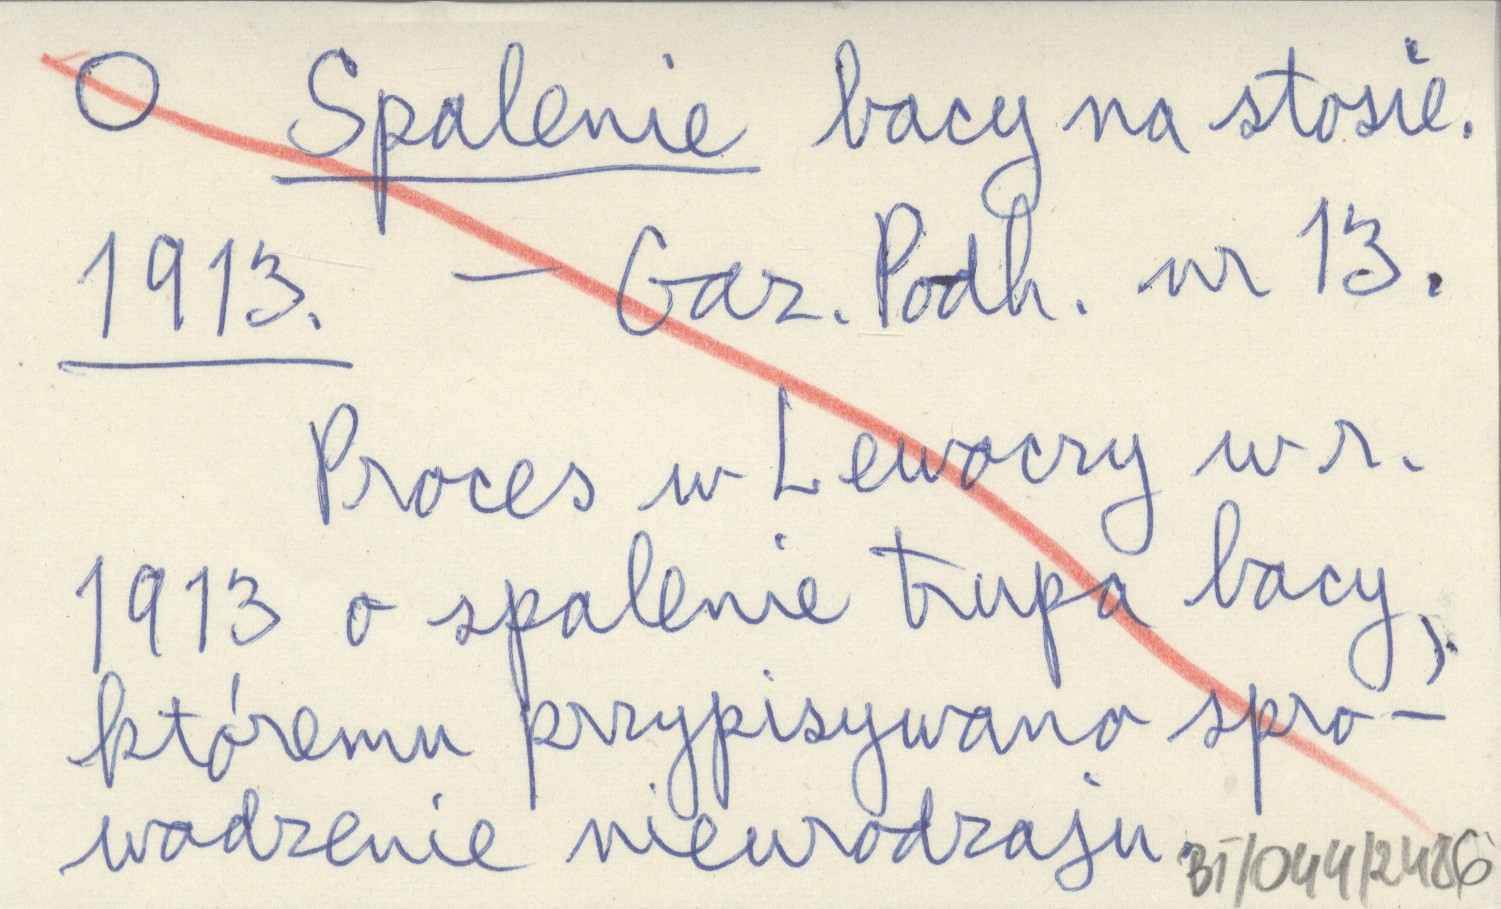 O Spalenie bacy na stosie.
1913. – Gaz. Podh. nr 13.
Proces w Lewoczy w r.
1913 o spalenie trupa bacy,
któremu przypisywano spro-
wadzenie nieurodzaju.
BT/044/2486